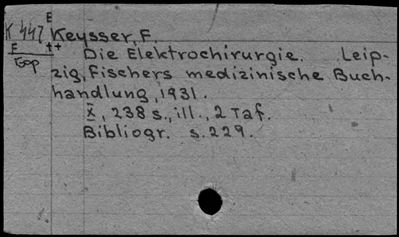 E
K 447 Keysser, F.
E ++
Die Elektrochirurgie. Leip-
zig, Fischers medizinische Buch-
handlung, 1931.
X, 238 s., ill., 2 Taf.
Bibliogr. s. 229.